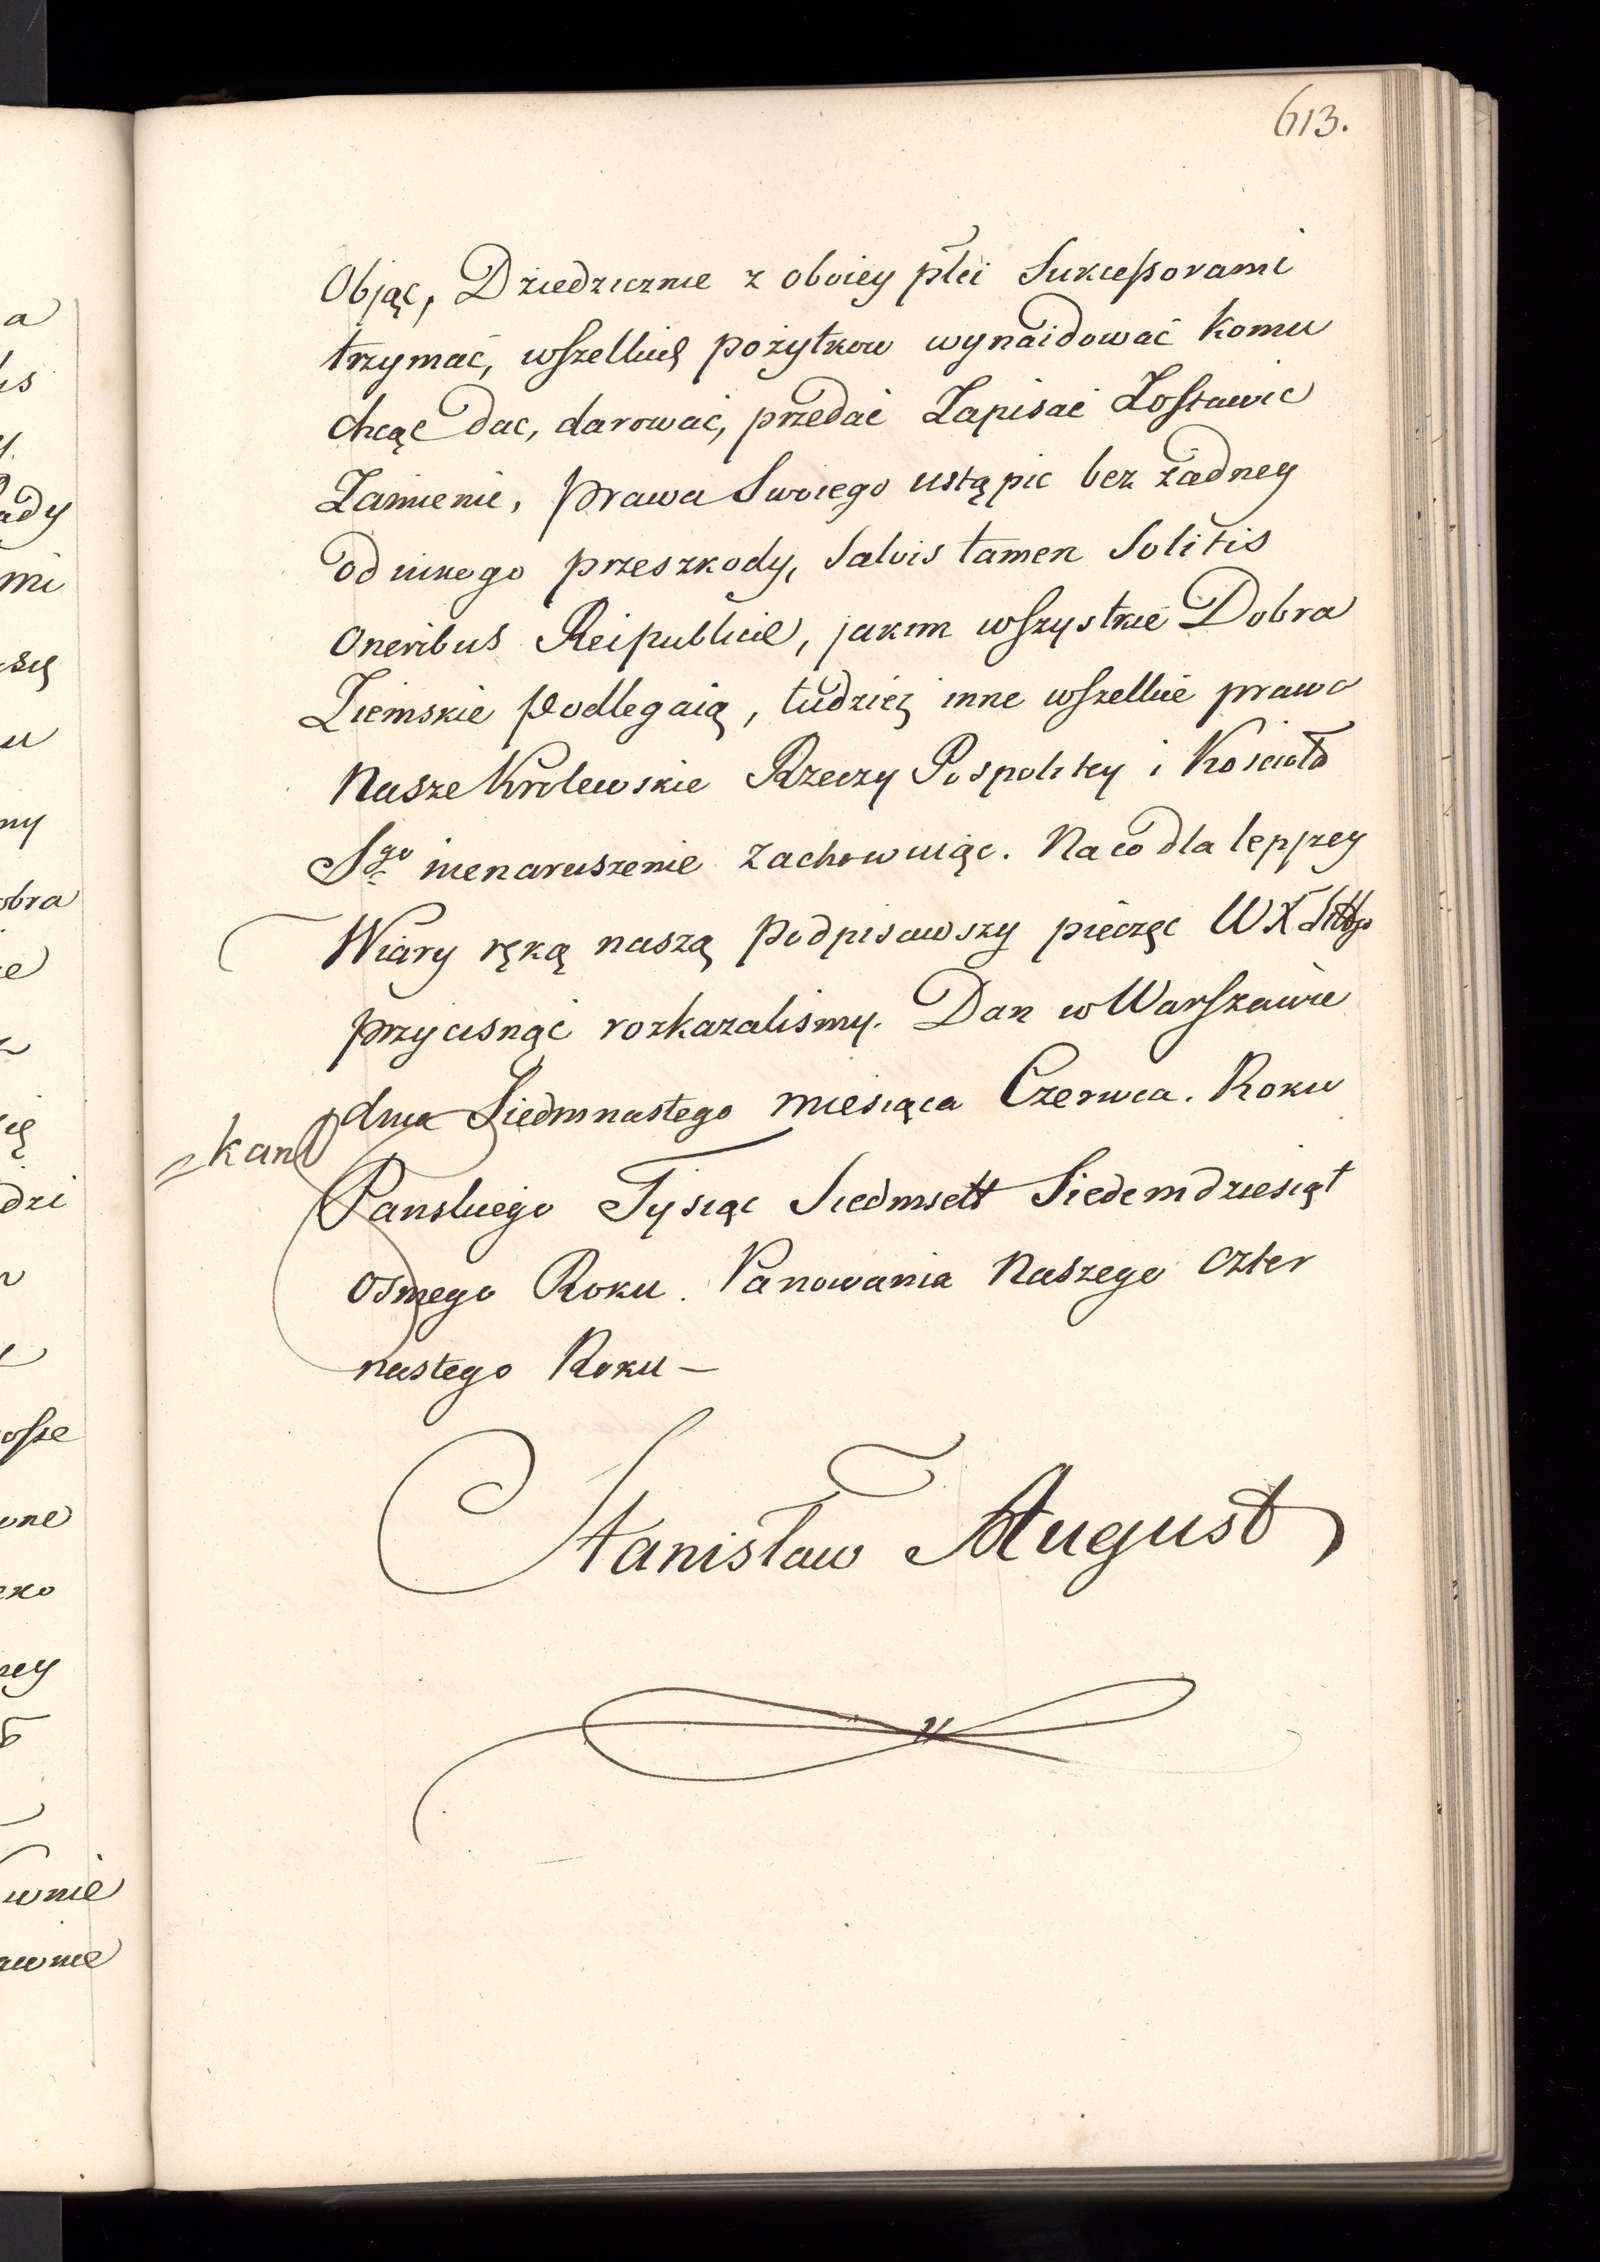 613.
Objąć, Dziedzicznie z oboiey płci Sukceßorami
trzymać, wszelkich pożytkow wynaidować komu
chcąc dac, darować, przedać Zapisać Zostawic
Zamienić, prawa Swoiego ustąpic bez żadney
od nikogo przeszkody, Salvis tamen Solitis
Oneribus Reipublicæ, jakim wszystkie Dobra
Ziemskie podlegaią, tudzież inne wszelkie prawa
Nasze Krolewskie Rzeczy Pospolitey i Kościoła
Sgo nienaruszenie zachowuiąc. Na co dla lepszey
Wiary ręką naszą podpisawszy pieczęc WX Littgo
przycisnąć rozkazalismy. Dan w Warszawie
dnia Siedmnastego miesiąca Czerwca. Roku
=kan
Panskiego Tysiąc Siedmsett Siedemdziesiąt
osmego Roku. Panowania Naszego czter
nastego Roku —
Stanisław August
a
ady
mi
się
u
ny
obra
ie
ię
dzi
osse
one
zko
ney
wnie
awnie